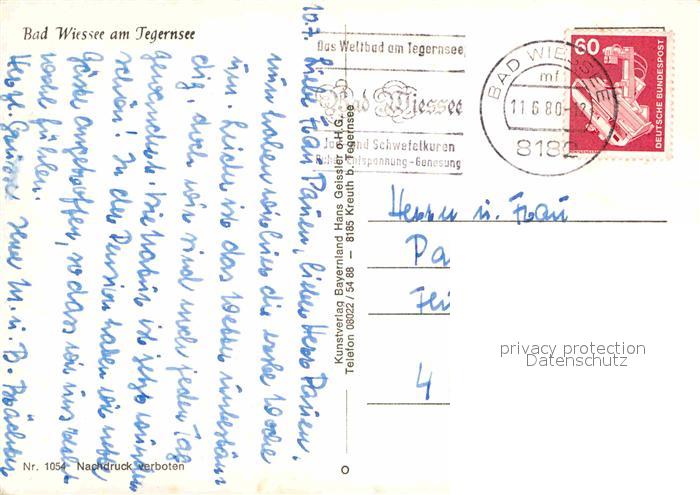 Bad Wiessee am Tegernsee
10.7. Liebe Frau Pauen, lieber Herr Pauen!
nun haben wir hier die erste Woche
um. Leider ist das Wetter unbestän
dig, doch wir sind noch jeden Tag
gewandert. Die Natur ist jetzt wunder
schön! In der Pension haben wir nette
Gäste angetroffen, so dass wir uns sehr
wohl fühlen.
Herzl. Grüsse Ihre M. u. B.
Nr. 1054 Nachdruck verboten
Kunstverlag Bayernland Hans Geissler o.H.G.
Telefon 08022 / 54 88 — 8185 Kreuth b. Tegernsee
Das Weltbad am Tegernsee
Bad Wiessee
Jod- und Schwefelkuren
Ruhe-Entspannung-Genesung
BAD WIESSEE
mf
11.6.80-12
8182
60
DEUTSCHE BUNDESPOST
Herrn u. Frau
Pa
4
privacy protection
Datenschutz